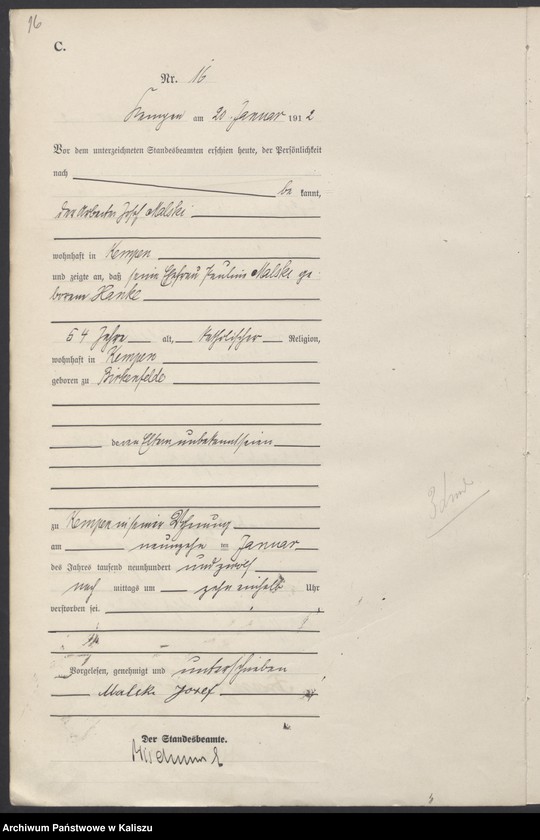 96
C.
Nr. 16
Kempen am 20. Januar 1912
Vor dem unterzeichneten Standesbeamten erschien heute, der Persönlichkeit
nach
be kannt,
der Arbeiter Josef Malski
wohnhaft in Kempen
und zeigte an, daß seine Ehefrau Pauline Malski ge-
borene Hanke
64 Jahre alt, katholischer Religion,
wohnhaft in Kempen
geboren zu Birkenfelde
deren Eltern unbekannt seien
zu Kempen in seiner Wohnung
am neunzehn ten Januar
des Jahres tausend neunhundert und zwölf
nach mittags um zehn einhalb Uhr
verstorben sei.
Vorgelesen, genehmigt und unterschrieben
Malski Josef
Der Standesbeamte.
Archiwum Państwowe w Kaliszu